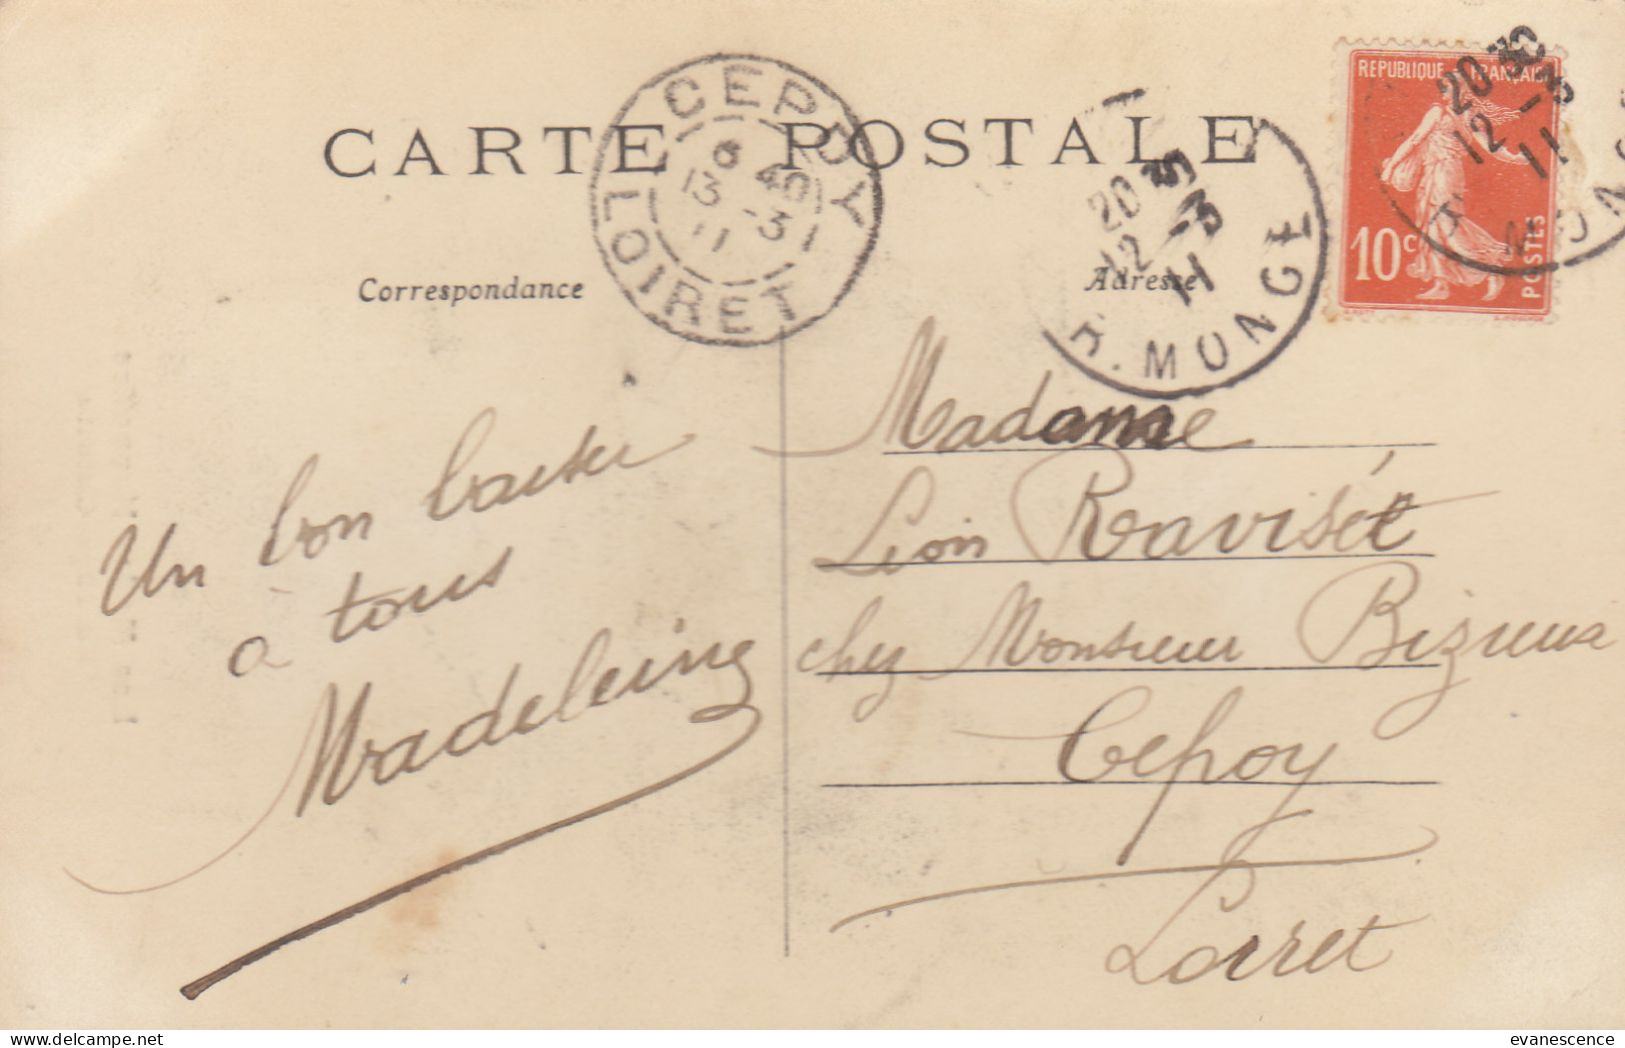 CARTE POSTALE
CEPOY
6 40
13 -3
11
LOIRET
20 35
12 -3
11
R. MONGE
REPUBLIQUE FRANÇAISE
10c
POSTES
20
12 -3
11
R. MONGE
Correspondance
Adresse
Un bon baiser
a tous
Madeleine
Madame
Léon Raviset
chez Monsieur
Cepoy
Loiret
evanescence